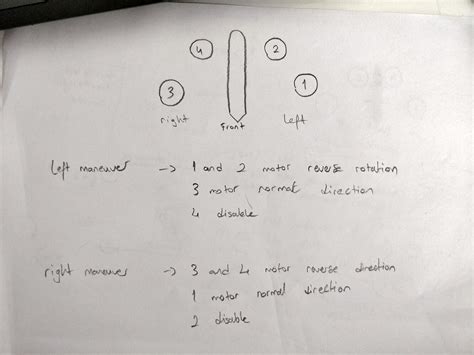 4 2
3 1
right Front left
Left maneuver → 1 and 2 motor reverse rotation
3 motor normal direction
4 disable
right maneuver → 3 and 4 motor reverse direction
1 motor normal direction
2 disable